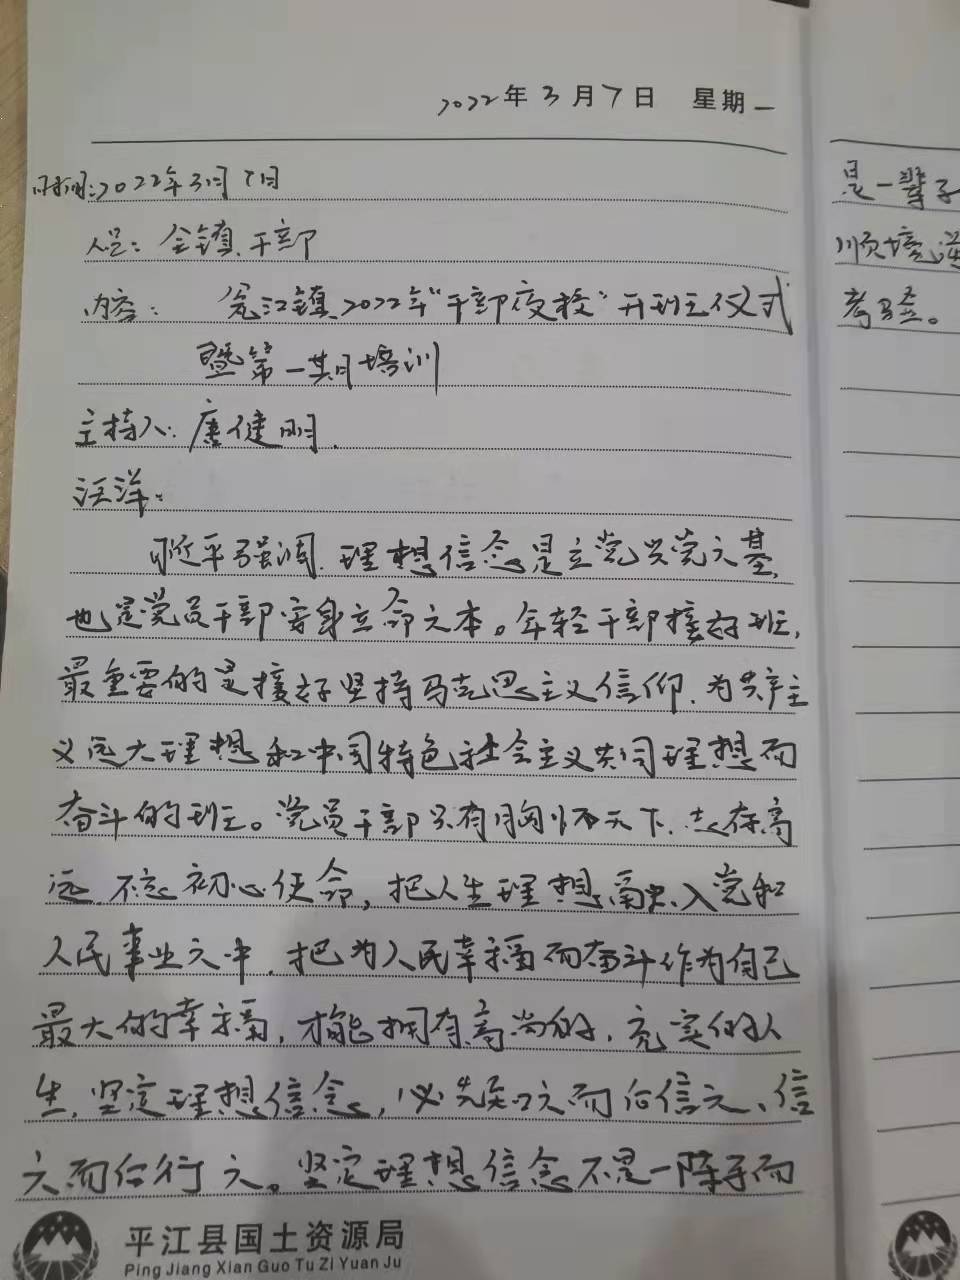 2022年3月7日 星期一
时间:2022年3月7日
人员:全镇干部
内容: 瓮江镇2022年"干部夜校"开班仪式
暨第一期培训
主持人:唐健明.
汪洋:
习近平强调.理想信念是立党兴党之基,
也是党员干部安身立命之本。年轻干部接好班,
最重要的是接好坚持马克思主义信仰.为共产主
义远大理想和中国特色社会主义共同理想而
奋斗的班。党员干部只有胸怀天下.志存高
远.不忘初心使命,把人生理想融入党和
人民事业之中.把为人民幸福而奋斗作为自己
最大的幸福,才能拥有高尚的,充实的人
生.坚定理想信念,必先知之而后信之、信
之而后行之。坚定理想信念不是一阵子而
平江县国土资源局
Ping Jiang Xian Guo Tu Zi Yuan Ju
是一辈子
顺境逆
考验。